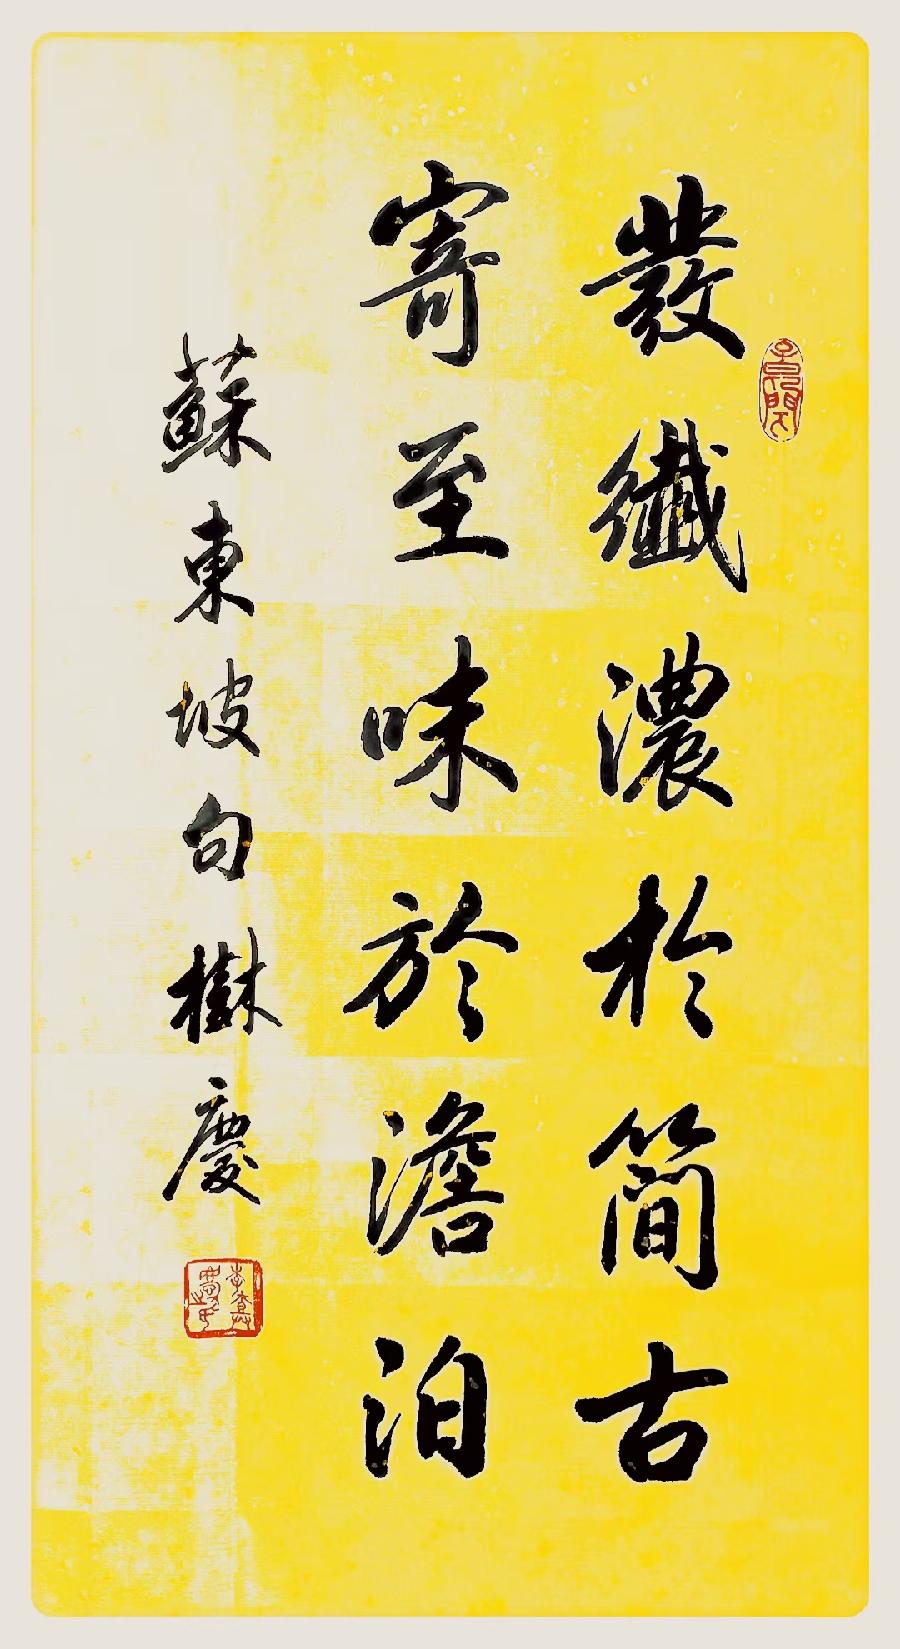 發纖濃於簡古
寄至味於澹泊
蘇東坡句樹慶